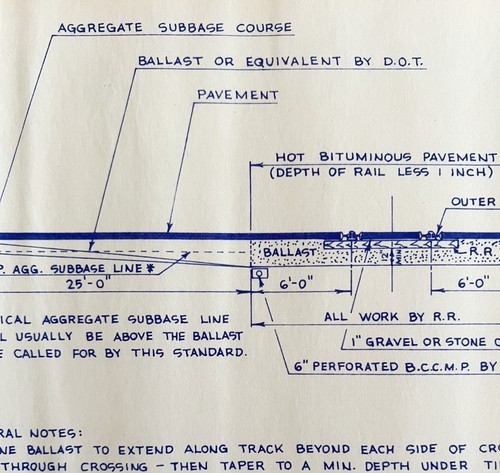 AGGREGATE SUBBASE COURSE
BALLAST OR EQUIVALENT BY D.O.T.
PAVEMENT
HOT BITUMINOUS PAVEMENT
(DEPTH OF RAIL LESS 1 INCH)
OUTER
BALLAST
R.R.
P. AGG. SUBBASE LINE *
25'-0"
6'-0"
6'-0"
ICAL AGGREGATE SUBBASE LINE
L USUALLY BE ABOVE THE BALLAST
E CALLED FOR BY THIS STANDARD.
ALL WORK BY R.R.
1" GRAVEL OR STONE
6" PERFORATED B.C.C.M.P. BY
RAL NOTES:
NE BALLAST TO EXTEND ALONG TRACK BEYOND EACH SIDE OF CR
THROUGH CROSSING - THEN TAPER TO A MIN. DEPTH UNDER